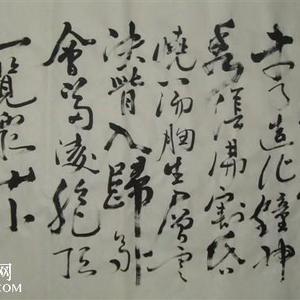 未了造化鐘神
秀陰陽割昏
曉盪胸生層雲
決眥入歸鳥
會當凌絕頂
一覽眾山小
网